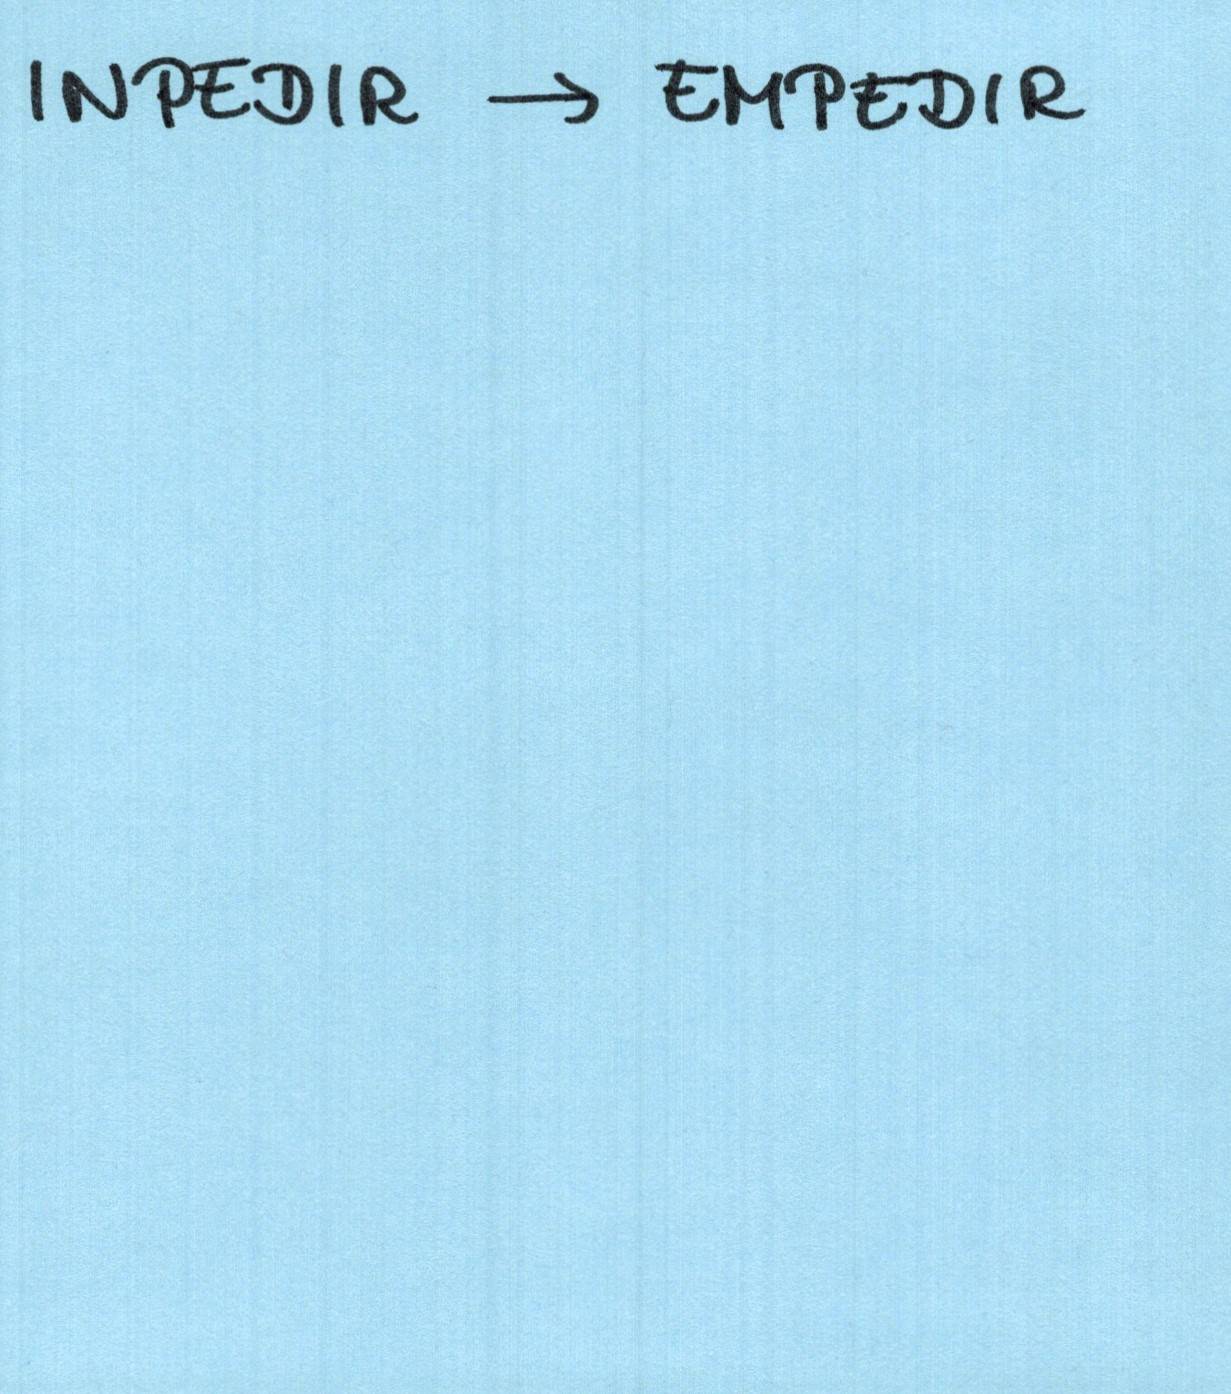 INPEDIR → EMPEDIR